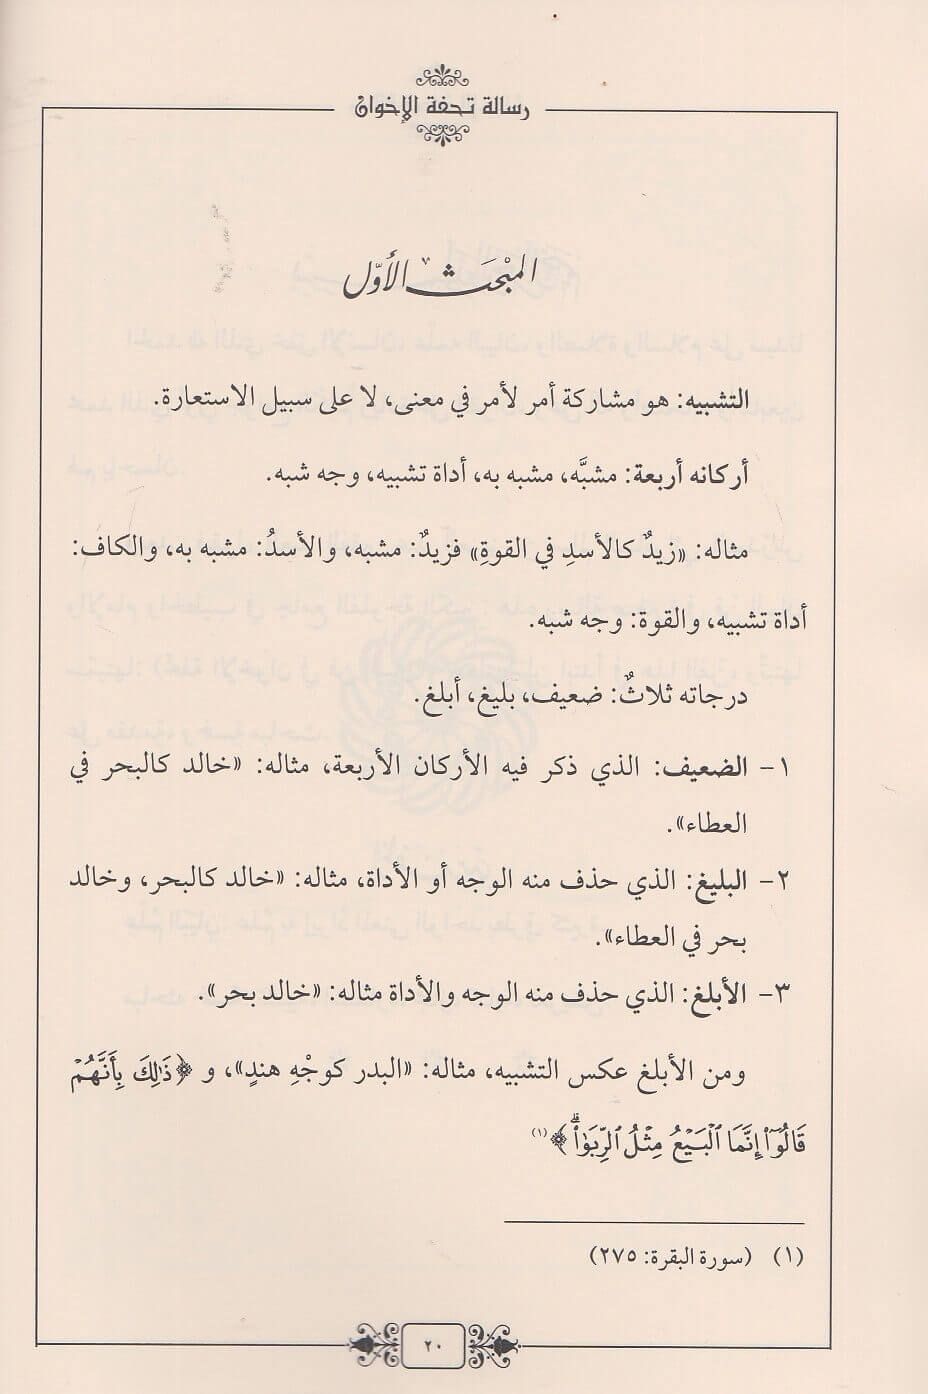 رسالة تحفة الإخوان
المبْحَث الأوّل
التشبيه: هو مشاركة أمر لأمر في معنى، لا على سبيل الاستعارة.
أركانه أربعة: مشبَّه، مشبه به، أداة تشبيه، وجه شبه.
مثاله: «زيدٌ كالأسدِ في القوةِ» فزيدٌ: مشبه، والأسدُ: مشبه به، والكاف:
أداة تشبيه، والقوة: وجه شبه.
درجاته ثلاثٌ: ضعيف، بليغ، أبلغ.
١- الضعيف: الذي ذكر فيه الأركان الأربعة، مثاله: «خالد كالبحر في
العطاء».
٢- البليغ: الذي حذف منه الوجه أو الأداة، مثاله: «خالد كالبحر، وخالد
بحر في العطاء».
٣- الأبلغ: الذي حذف منه الوجه والأداة مثاله: «خالد بحر».
ومن الأبلغ عكس التشبيه، مثاله: «البدر كوجْهِ هندٍ»، و ﴿ذَٰلِكَ بِأَنَّهُمْ
قَالُوٓا۟ إِنَّمَا ٱلْبَيْعُ مِثْلُ ٱلرِّبَوٰا۟ ۗ﴾(١)
(١) (سورة البقرة: ٢٧٥)
٢٠